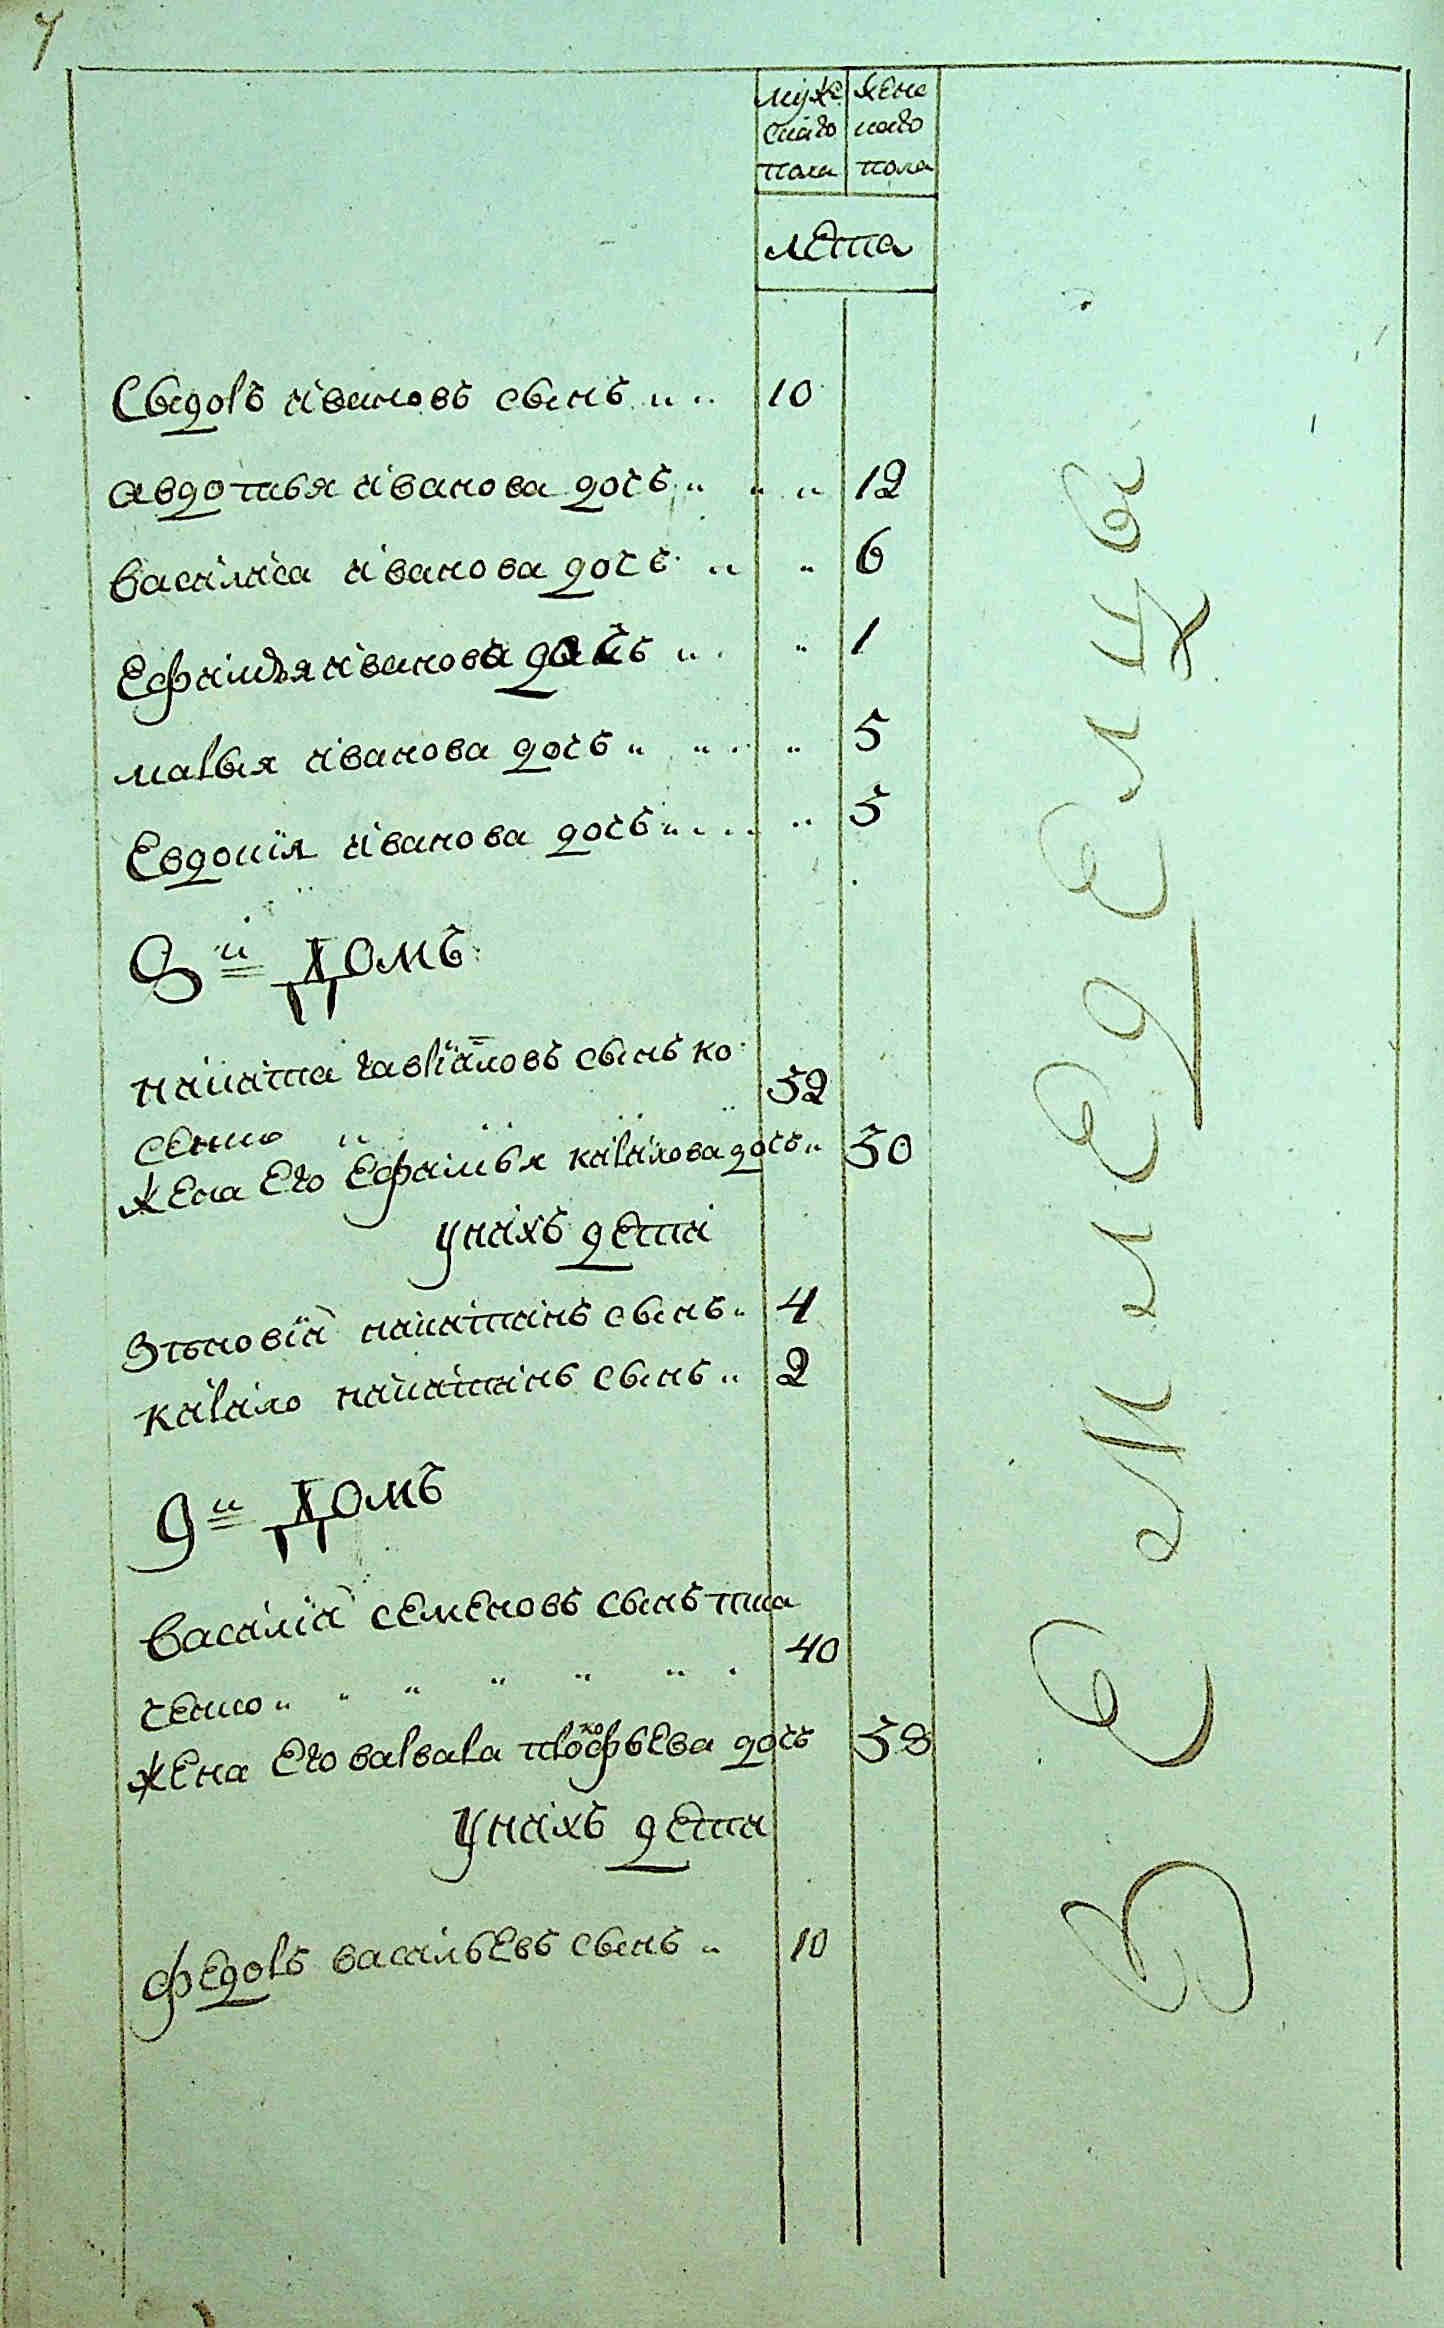 муже жене
скаго скаго
пола пола
лета
Сидоръ ивановъ сынъ 10
авдотья иванова дочь 12
василиса иванова дочь 6
Ефимья иванова дочь 1
марья иванова дочь 5
Евдокия иванова дочь 5
8й Домъ
никита гавриловъ сынъ ко
сенко 52
жена Его Ефимья кирилова дочь 50
у нихъ дети
Зѣновiй никитинъ сынъ 4
кирило никитинъ сынъ 2
9й Домъ
василiй семеновъ сынъ тка
ченко 40
жена Его варвара прокофьева дочь 38
у нихъ дети
федоръ васильевъ сынъ 10
Земледелцы